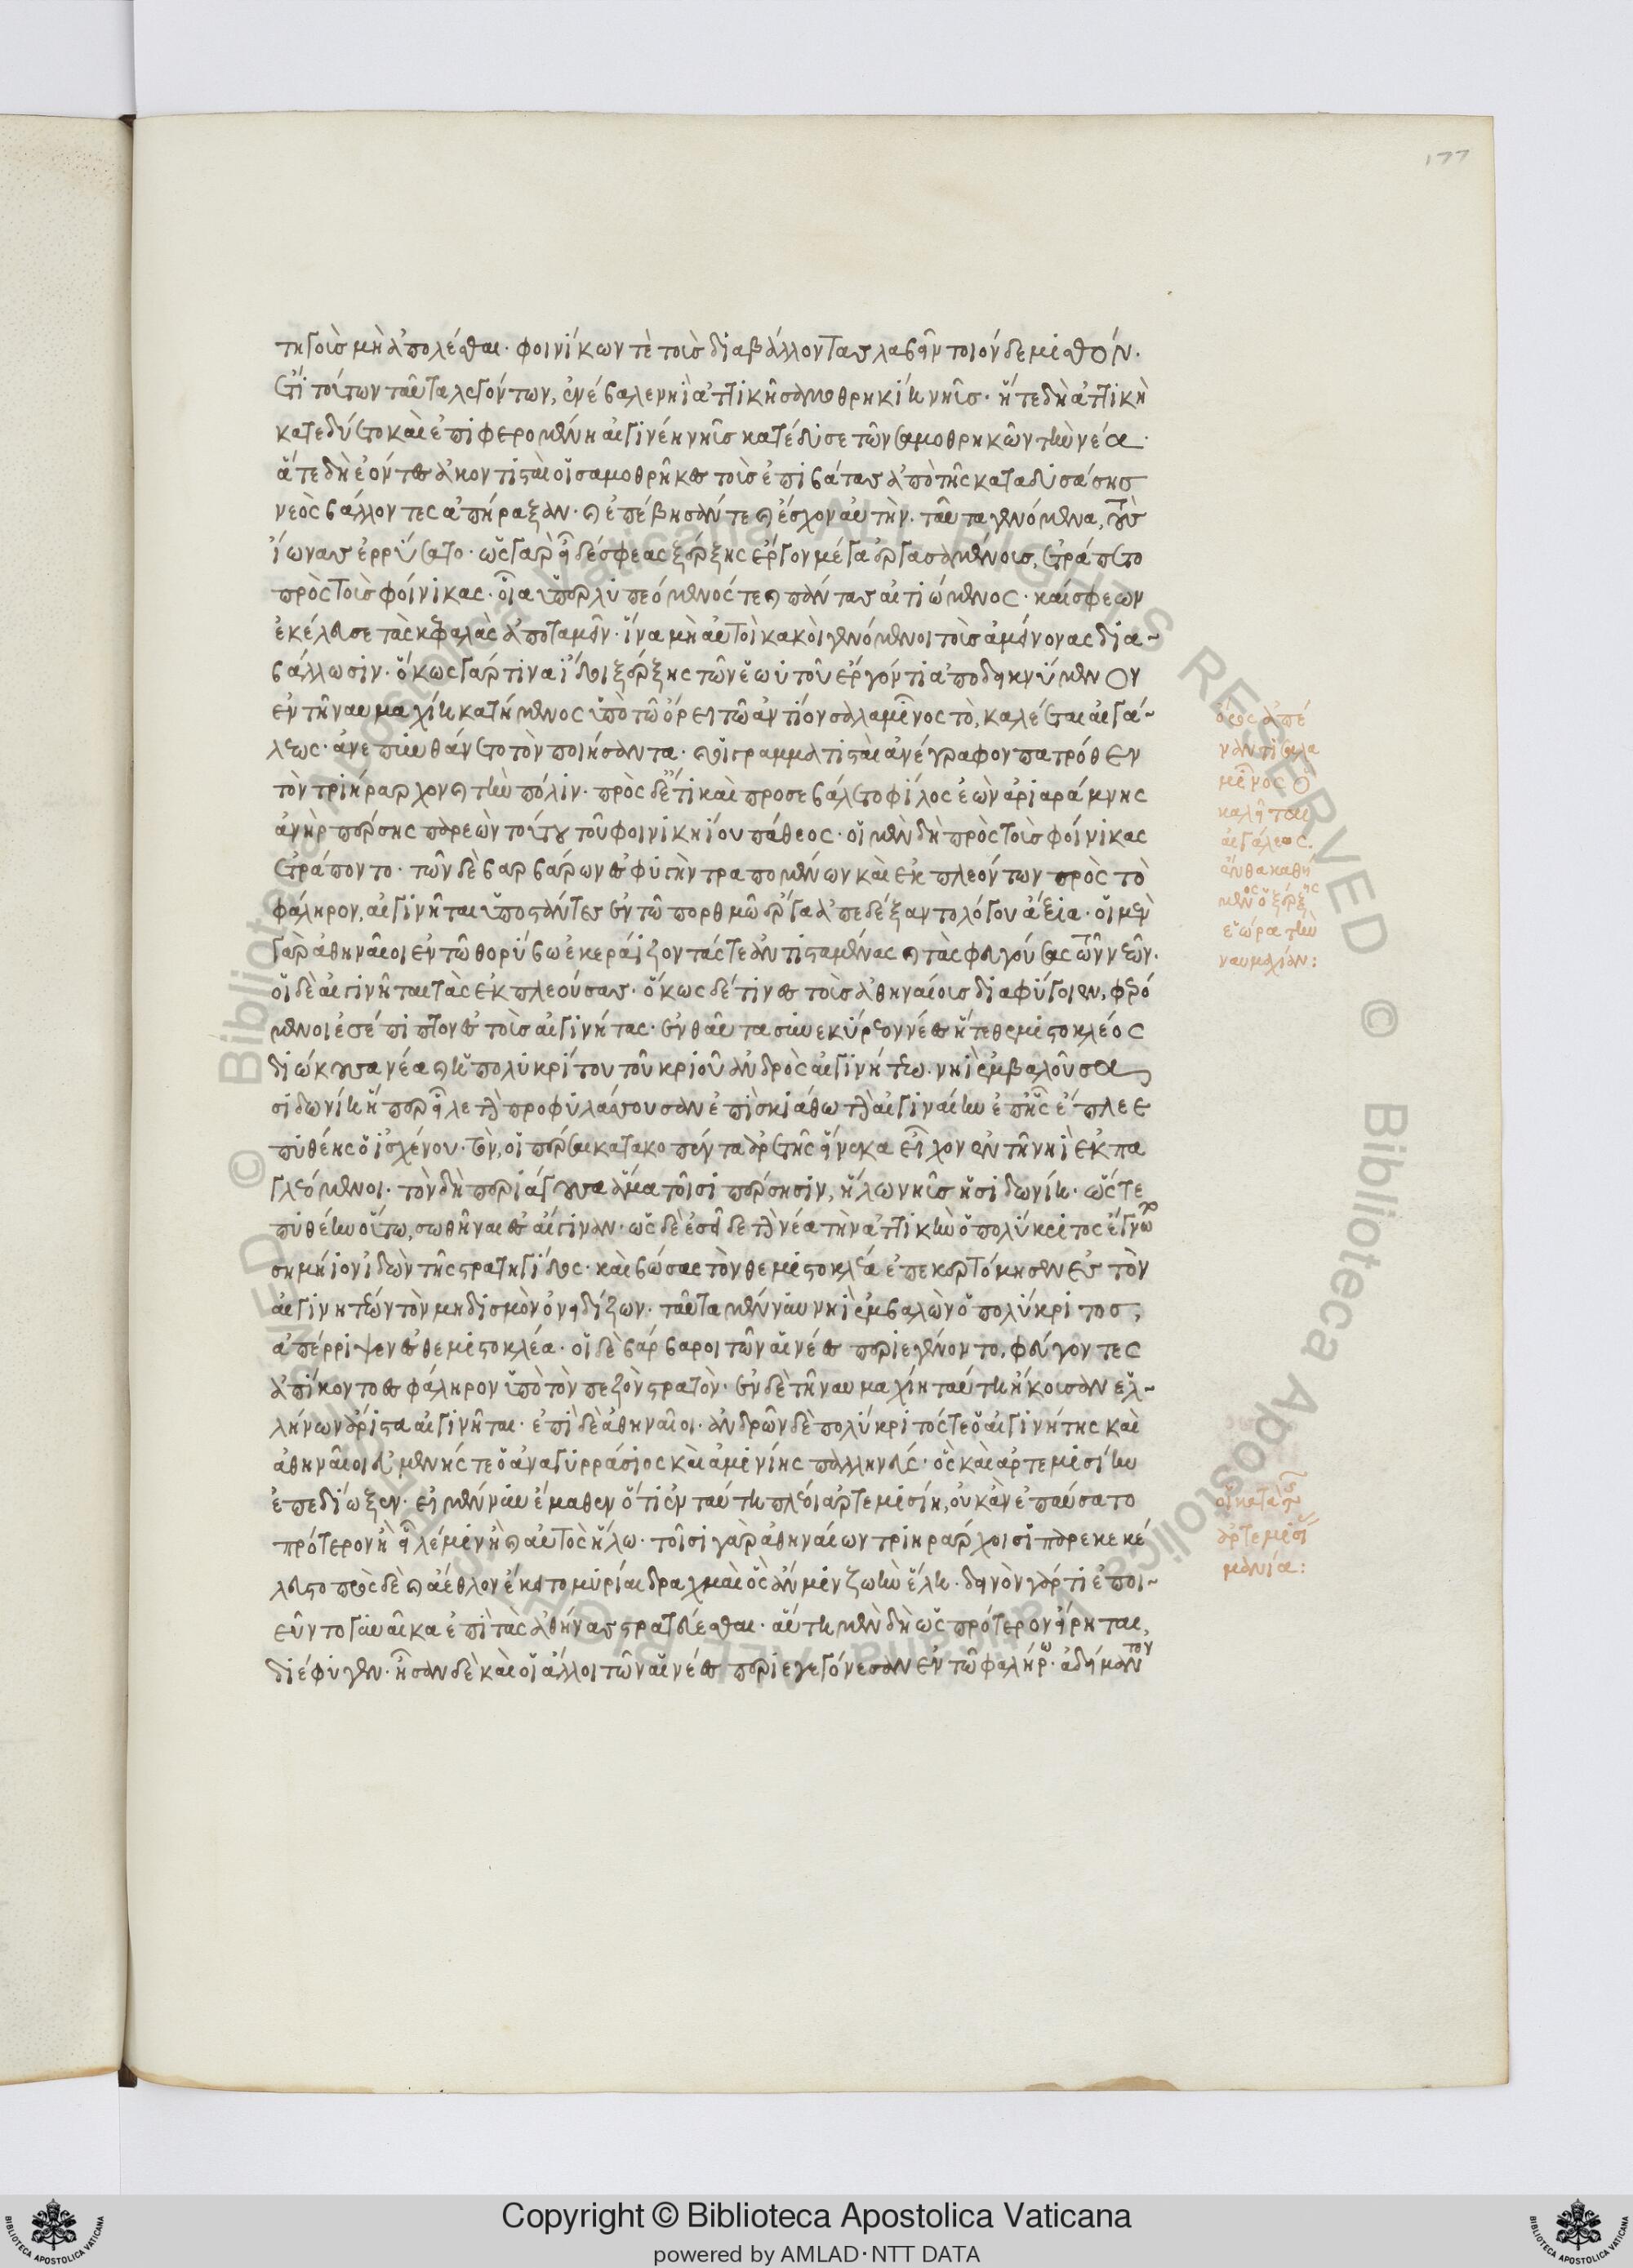 177
τηγοὺς μὴ ἀπολέσθαι· φοινίκων τὲ τοὺς διαβάλλοντας λαβεῖν τοιόνδε μισθόν.
ἔτι τούτων ταῦτα λεγόντων, ἐνέβαλε νηῒ ἀττικῇ σαμοθρηκίη νηῦς· ἥ τε δὴ ἀττικὴ
κατεδύετο καὶ ἐπιφερομένη αἰγινέη νηῦς κατέδυσε τῶν σαμοθρηκῶν τὴν νέα·
ἅτε δὴ ἐόντες ἀκοντισταὶ οἱ σαμοθρῆκες τοὺς ἐπιβάτας ἀπὸ τῆς καταδυσάσης
νεὸς βάλλοντες ἀπήραξαν· καὶ ἐπέβησάν τε καὶ ἔσχον αὐτὴν. ταῦτα γενόμενα, τοὺς
ἴωνας ἐρρύσατο· ὡς γὰρ εἶδέ σφεας ξέρξης ἔργον μέγα ἐργασαμένους, ἐτράπετο
πρὸς τοὺς φοίνικας· οἷα ὑπερλυπεόμενός τε καὶ πάντας αἰτιώμενος· καί σφεων
ἐκέλευσε τὰς κεφαλὰς ἀποταμεῖν· ἵνα μὴ αὐτοὶ κακοὶ γενόμενοι τοὺς ἀμείνονας δια-
βάλλωσιν· ὅκως γάρ τινα ἴδοι ξέρξης τῶν ἑωυτοῦ ἔργόν τι ἀποδεικνύμενον
ἐν τῇ ναυμαχίῃ κατήμενος ὑπὸ τῷ ὄρεϊ τῷ ἀντίον σαλαμῖνος τὸ, καλέεται αἰγά-
λεως· ἀνεπυνθάνετο τὸν ποιήσαντα· καὶ οἱ γραμματισταὶ ἀνέγραφον πατρόθεν
τὸν τριήραρχον καὶ τὴν πόλιν· πρὸς δέ τι καὶ προσεβάλετο φίλος ἐὼν ἀριαράμνης
ἀνὴρ πέρσης παρεὼν τούτου τοῦ φοινικηΐου πάθεος· οἱ μὲν δὴ πρὸς τοὺς φοίνικας
ἐτράποντο· τῶν δὲ βαρβάρων ἐς φυγὴν τραπομένων καὶ ἐκπλεόντων πρὸς τὸ
φάληρον, αἰγινῆται ὑποστάντες ἐν τῷ πορθμῷ ἔργα ἀπεδέξαντο λόγου ἄξια· οἱ μὲν
γὰρ ἀθηναῖοι ἐν τῷ θορύβῳ ἐκεράϊζον τάς τε ἀντισταμένας καὶ τὰς φευγούσας τῶν νεῶν.
οἱ δὲ αἰγινῆται τὰς ἐκπλεούσας· ὅκως δέ τινες τοὺς ἀθηναίους διαφύγοιεν, φερό
μενοι ἐσέπιπτον ἐς τοὺς αἰγινήτας· ἐνθαῦτα συνεκύρεον νέες ἥ τε θεμιστοκλέος
διώκουσα νέα καὶ ἡ πολυκρίτου τοῦ κριοῦ ἀνδρὸς αἰγινήτεω. νηῒ ἐμβαλοῦσα
σιδωνίῃ ἥ περ εἷλε τὴν προφυλάσσουσαν ἐπὶ σκιάθῳ τὴν αἰγιναίην ἐπ ἧς ἔπλεε
πυθέης ὁ ἰσχένου· τὸν, οἱ πέρσαι κατακοπέντα ἀρετῆς εἵνεκα εἶχον ἐν τῇ νηῒ ἐκπα
γλεόμενοι· τὸν δὴ περιάγουσα ἅμα τοῖσι πέρσησιν, ἥλω νηῦς ἡ σιδωνίη· ὥστε
πυθέην οὕτω, σωθῆναι ἐς αἴγιναν· ὡς δὲ ἐσεῖδε τὴν νέα τὴν ἀττικὴν ὁ πολύκριτος ἔγνω
σημήϊον ἰδὼν τῆς στρατηγίδος· καὶ βώσας τὸν θεμιστοκλέα ἐπεκερτόμησεν ἐς τὸν
αἰγινητέων τὸν μηδισμὸν ὀνειδίζων· ταῦτα μέν νυν νηῒ ἐμβαλὼν ὁ πολύκριτος,
ἀπέρριψεν ἐς θεμιστοκλέα· οἱ δὲ βάρβαροι τῶν αἱ νέες περιεγένοντο, φεύγοντες
ἀπίκοντο ἐς φάληρον ὑπὸ τὸν πεζὸν στρατὸν· ἐν δὲ τῇ ναυμαχίῃ ταύτῃ ἤκουσαν ἑλ-
λήνων ἄριστα αἰγινῆται· ἐπὶ δὲ ἀθηναῖοι· ἀνδρῶν δὲ πολύκριτός τε ὁ αἰγινήτης καὶ
ἀθηναῖοι εὐμένης τε ὁ ἀναγυρράσιος καὶ ἀμεινίης παλληνεύς· ὃς καὶ ἀρτεμισίην
ἐπεδίωξεν· εἰ μέν νυν ἔμαθεν ὅτι ἐν ταύτῃ πλέοι ἀρτεμισίη, οὐκ ἂν ἐπαύσατο
πρότερον ἢ εἷλέ μιν ἢ καὶ αὐτὸς ἥλω· τοῖσι γὰρ ἀθηναίων τριηράρχοισι παρεκεκέ
λευστο πρὸς δὲ καὶ ἄεθλον ἔκειτο μύριαι δραχμαὶ ὃς ἄν μιν ζωὴν ἕλῃ· δεινὸν γάρ τι ἐποι-
εῦντο γυναῖκα ἐπὶ τὰς ἀθήνας στρατεύεσθαι· αὕτη μὲν δὴ ὡς πρότερον εἴρηται,
διέφυγεν· ἦσαν δὲ καὶ οἱ ἄλλοι τῶν αἱ νέες περιεγεγόνεσαν ἐν τῷ φαλήρῳ· ἀδείμαντον
ὄρος ἀπέ
ναντι σαλα
μῖνος ὃ
καλεῖται
αἰγάλεος.
ἔνθα καθή
μενος ὁ ξέρξης
ἑώρα τὴν
ναυμαχίαν:
ἀρτεμισί
μανία:
Copyright © Biblioteca Apostolica Vaticana
powered by AMLAD·NTT DATA